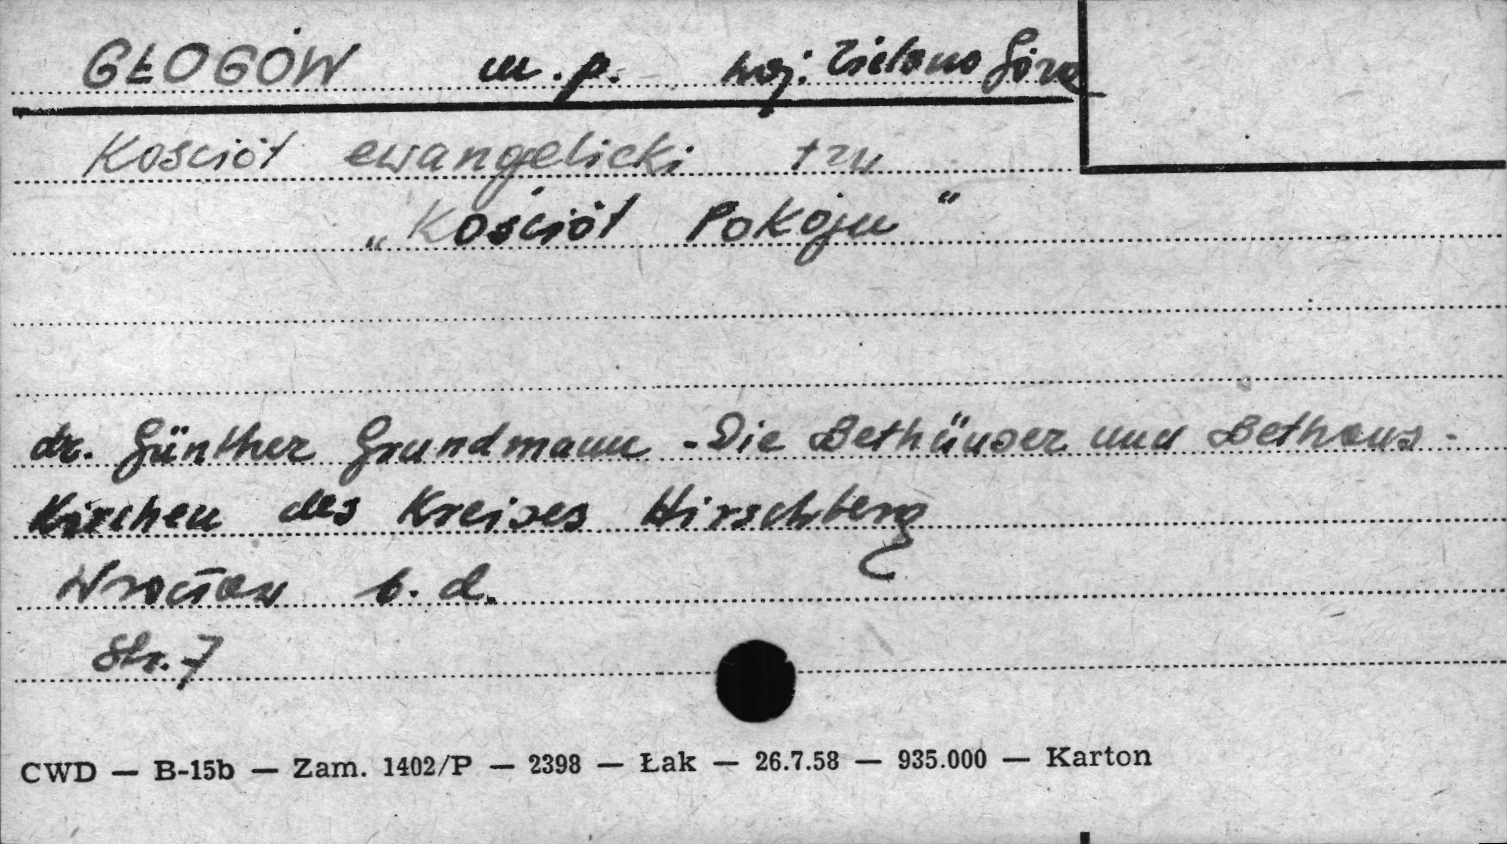 GŁOGÓW m.p. woj. Zielona Góra
Kościół ewangelicki tzw
„Kościół Pokoju"
dr. Günther Grundmann - Die Bethäuser und Bethaus-
Kirchen des Kreises Hirschberg
Wrocław b.d.
Str. 7
CWD — B-15b — Zam. 1402/P — 2398 — Łak — 26.7.58 — 935.000 — Karton